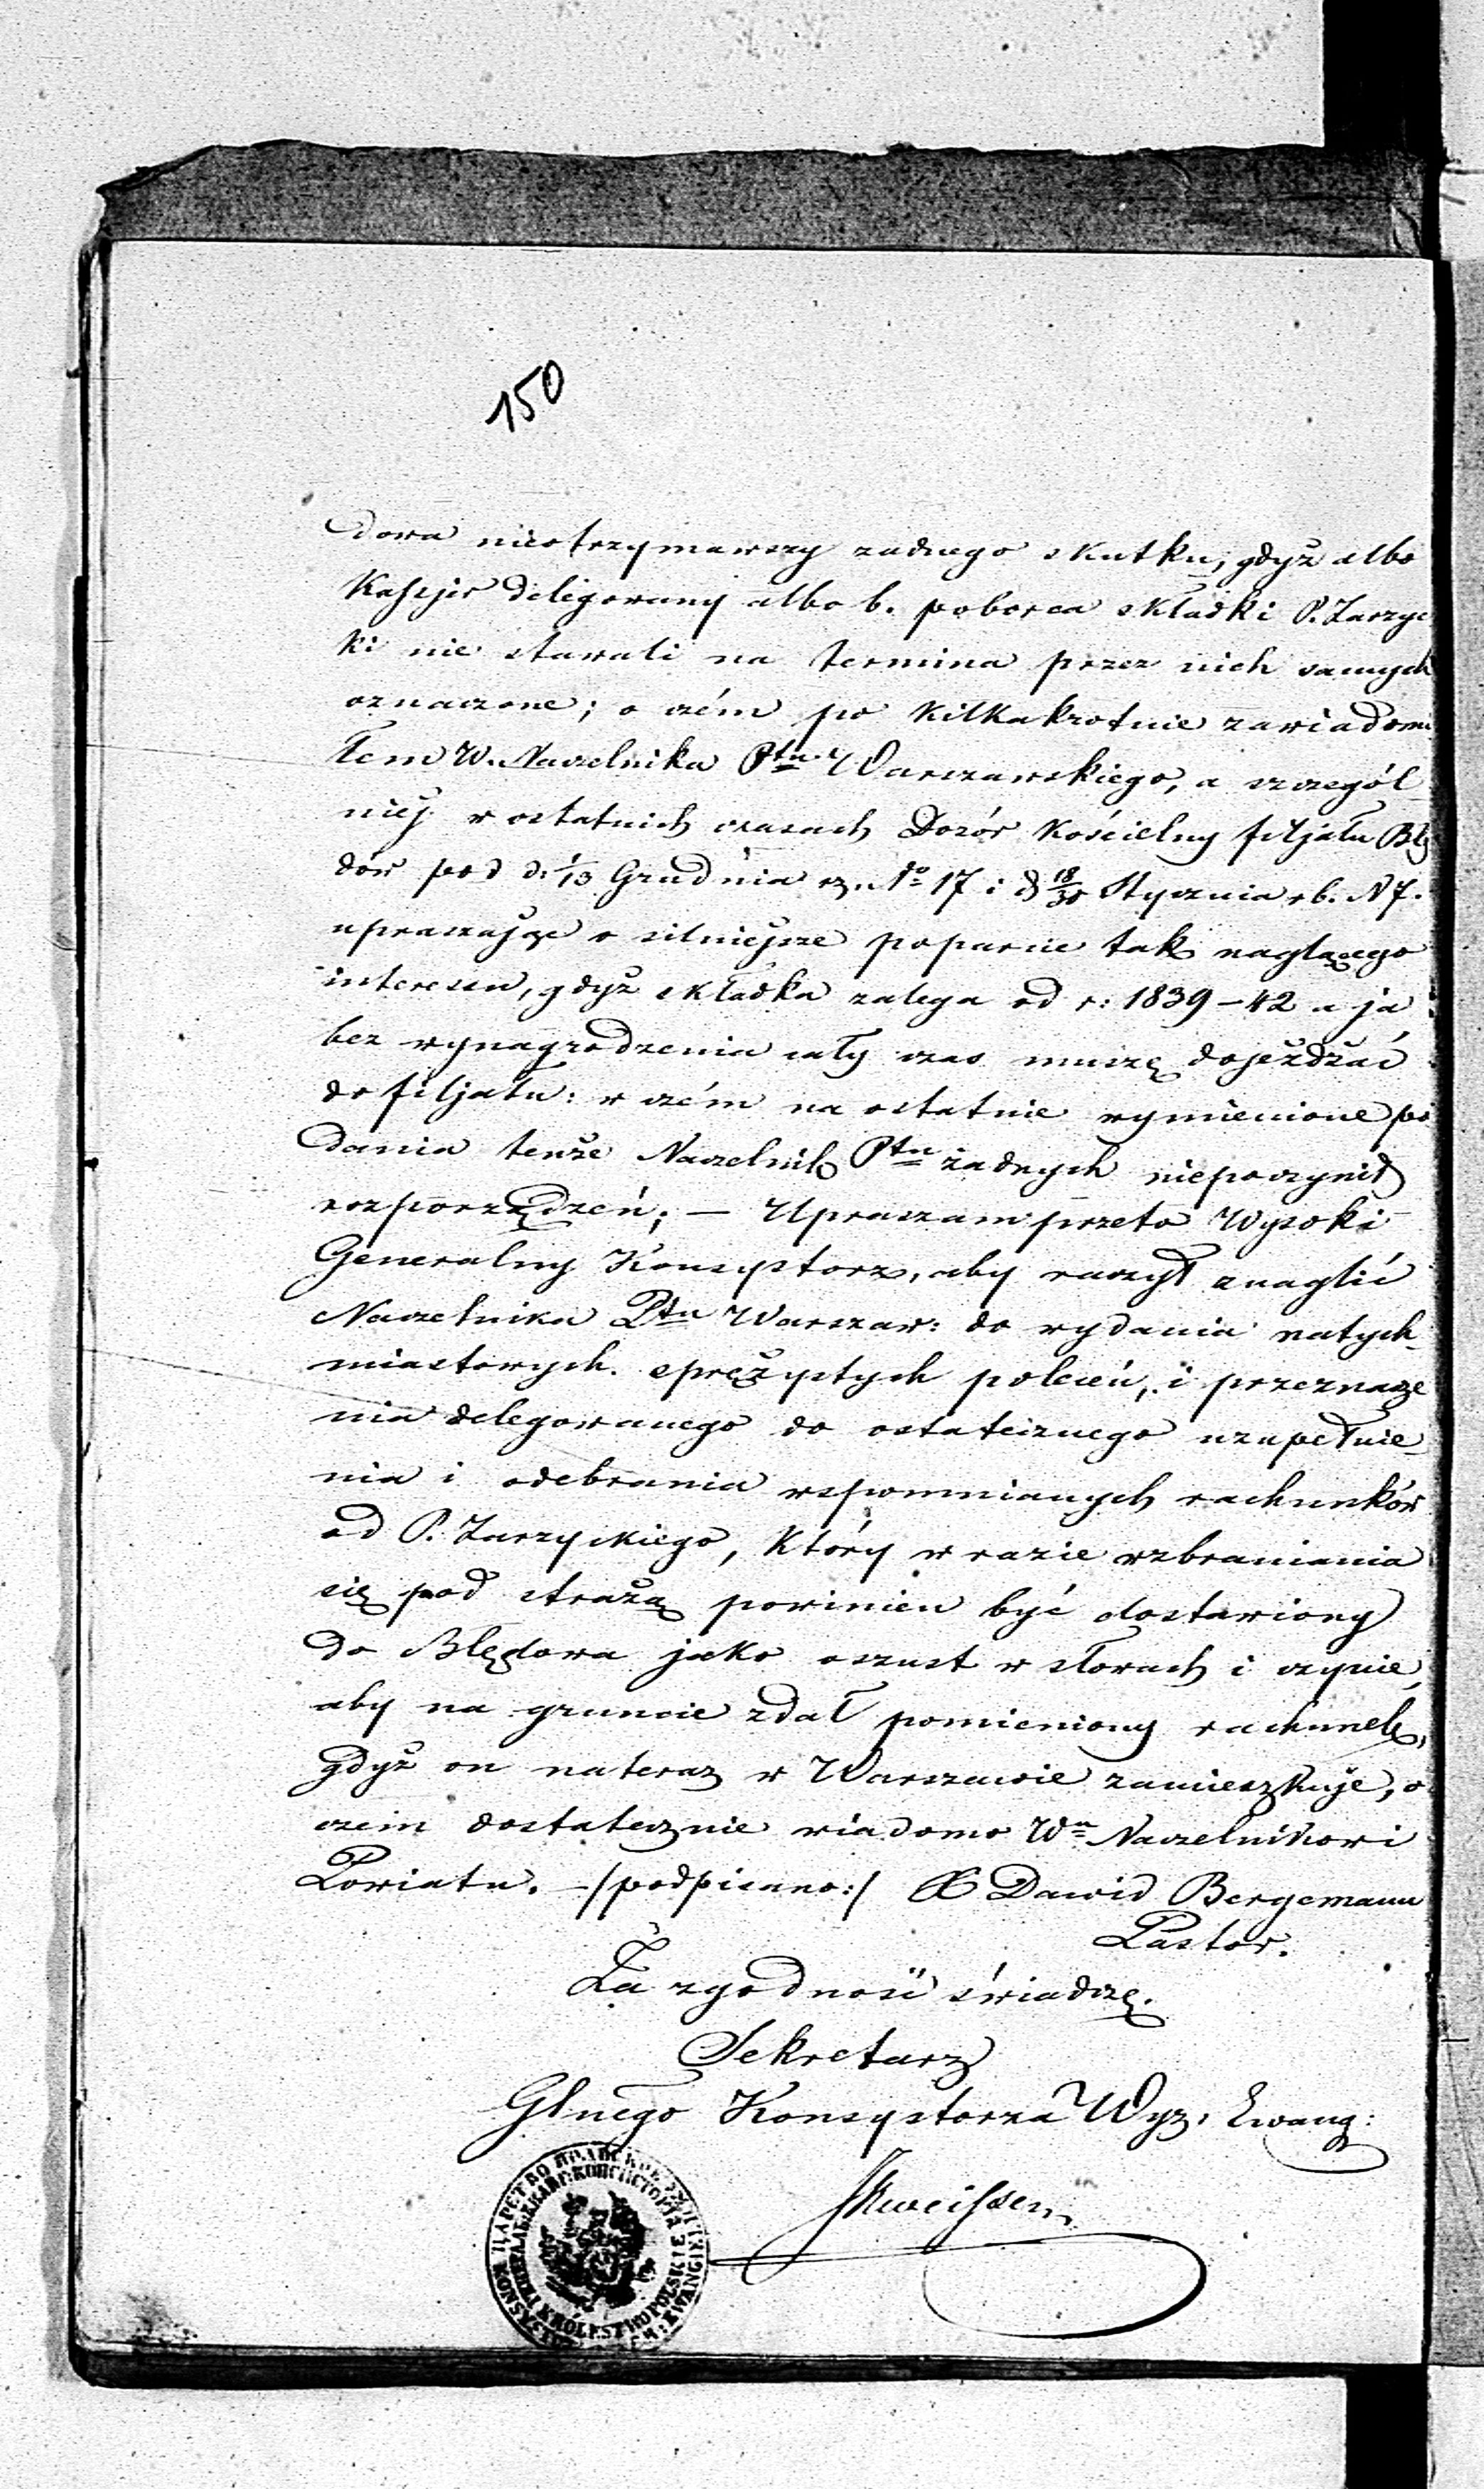 150
dowa nieotrzymawszy żadnego skutku, gdyż albo
Kassjer delegowany albo b. poborca składki P. Zarzyc
ki nie stawali na termina przez nich samych
oznaczone; o czém po kilkakrotnie zawiadomi
łem W. Naczelnika Ptu Warszawskiego, a szczegól
niej w ostatnich czasach Dozór Kościelny filjału Błę
dów pod d. 1/13 Grudnia rz. No 17 i d 18/30 Stycznia rb. N 7.
upraszając o silniejsze poparcie tak naglącego
interesu, gdyż składka zalega od r: 1839 – 42 a ja
bez wynagrodzenia cały czas muszę dojeżdżać
do filjału: w czém na ostatnie wymienione po
dania tenże Naczelnik Ptu żadnych niepoczynił
rozporządzeń; — Upraszam przeto Wysoki
Generalny Konsystorz, aby raczył znaglić
Naczelnika Ptu Warszaw: do wydania natych-
miastowych sprężystych poleceń, i przeznacze
nia delegowanego do ostatecznego uzupełnie-
nia i odebrania wspomnianych rachunków
od P. Zarzyckiego, który w razie wzbraniania
się pod strażą powinien być dostawiony
do Błędowa jako oszust w słowach i czynie,
aby na gruncie zdał pomieniony rachunek,
gdyż on nateraz w Warszawie zamieszkuje, o
czem dostatecznie wiadomo Wu Naczelnikowi
Powiatu. – /podpisano:/ X Dawid Bergemann
Pastor.
Za zgodność świadczę.
Sekretarz
Głnego Konsystorza Wyz. Ewang:
ЦАРСТВО ПОЛЬСКОЕ
КРÓLESTWO POLSKIE